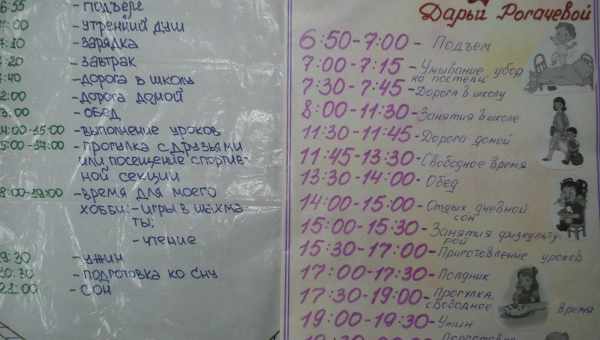 6:55 - подъём
7:00 - утренний душ
7:10 - зарядка
7:20 - завтрак
7:40 - дорога в школу
12:00 - дорога домой
13:00 - обед
14:00-15:00 - выполнение уроков
15:00-17:00 - прогулка с друзьями
или посещение спортив-
ной секции
18:00-19:00 - время для моего
хобби: - игры в шахма-
ты;
- чтение
19:30 - ужин
20:30 - подготовка ко сну
21:00 - сон
Дарьи Рогачевой
6:50-7:00 - Подъем
7:00-7:15 - Умывание убор
ка постели
7:30-7:45 - Дорога в школу
8:00-11:30 - Занятия в школе
11:30-11:45 - Дорога домой
11:45-13:30 - Свободное время
13:30-14:00 - Обед
14:00-15:00 - Отдых дневной
сон
15:00-15:30 - Занятия физкульту
рой
15:30-17:00 - Приготовление уроков
17:00-17:30 - Полдник
17:30-19:00 - Прогулка,
свободное время
19:00-19:30 - Ужин